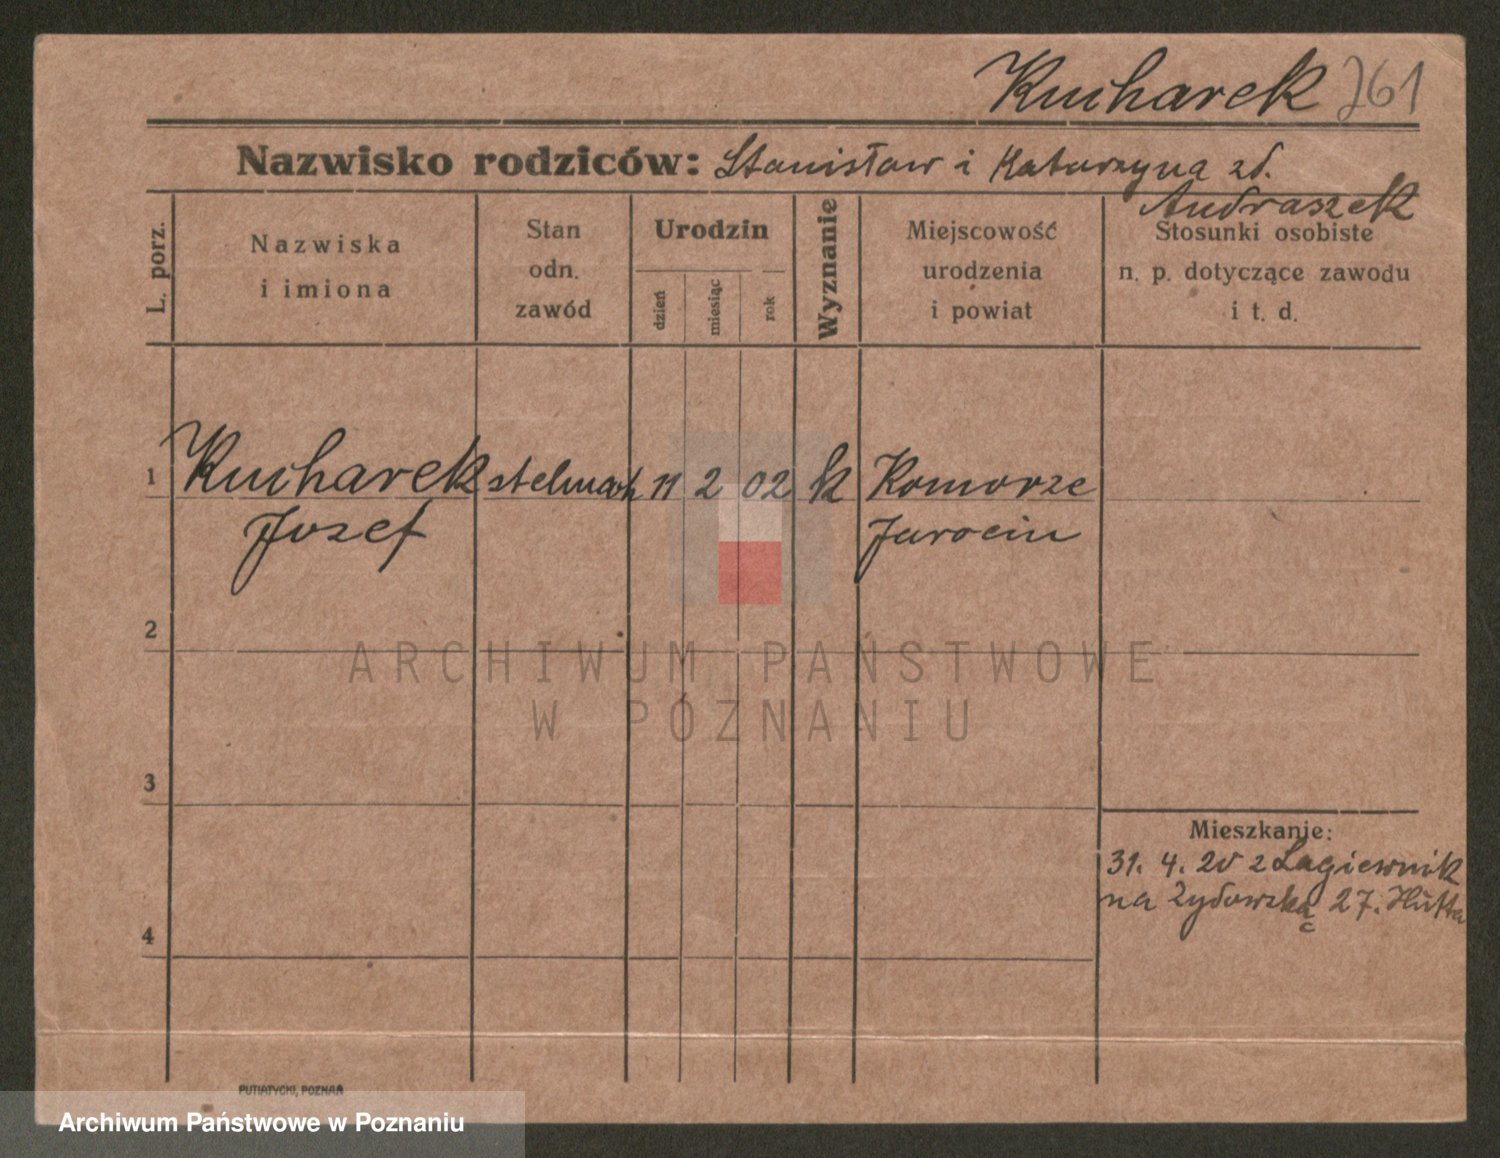 Kucharek 261
Nazwisko rodziców: Stanisław i Katarzyna zd.
Andraszek
L. porz.
Nazwiska
i imiona
Stan
odn.
zawód
Urodzin
dzień
miesiąc
rok
Wyznanie
Miejscowość
urodzenia
i powiat
Stosunki osobiste
n. p. dotyczące zawodu
i t. d.
1 Kucharek stelmach 11 2 02 k Komorze
Jozef Jarocin
2
ARCHIWUM PAŃSTWOWE
W POZNANIU
3
Mieszkanie:
31. 4. 20 z Lagiewnik
na Żydowską 27. Hutta
4
PUTIATYCKI, POZNAŃ
Archiwum Państwowe w Poznaniu